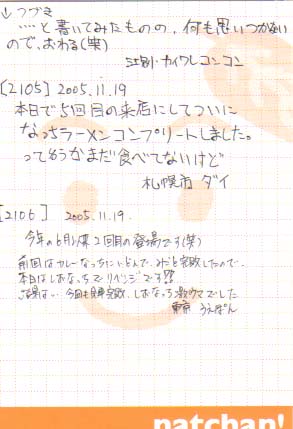 ↓つづき
‥‥と書いてみたものの、何も思いつかない
ので、おわる(笑)
江別・カイワレコンコン
[2105] 2005.11.19
本日で5回目の来店にしてついに
なっちラーメンコンプリートしました。
ってゆうかまだ食べてないけど
札幌市 ダイ
[2106] 2005.11.19.
今年の6月以来2回目の登場です(笑)
前回はカレーなっちにいどんで、みごと完敗したので、
本日はしおなっちでリベンジです!!
結果は… 今回も完敗、しおなっち激ウマでした
東京 うえぽん
natchan!